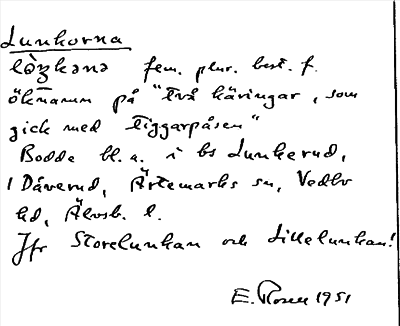 Lunkorna
fem. plur. best. f.
öknamn på "två käringar, som
gick med tiggarpåsen"
Bodde bl. a. i bs Lunkerud,
i Dåverud, Ärtemarks sn, Vedbo
hd, Älvsb. l.
Jfr Storelunkan och Lillelunkan!
E. Rosell 1951